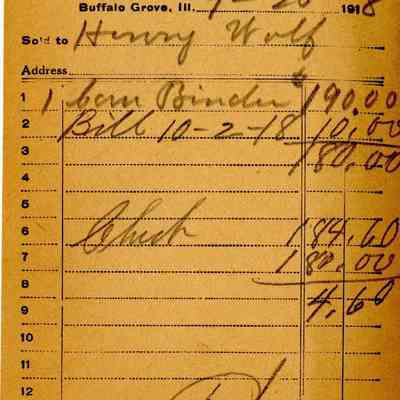 Buffalo Grove, Ill. 1918
Sold to Henry Wolf
Address
1 1 corn Binder $190.00
2 Bill 10-2-18 10,00
3 180,00
4
5
6 Check 184,60
7 180.00
8
9 4,60
10
11
12